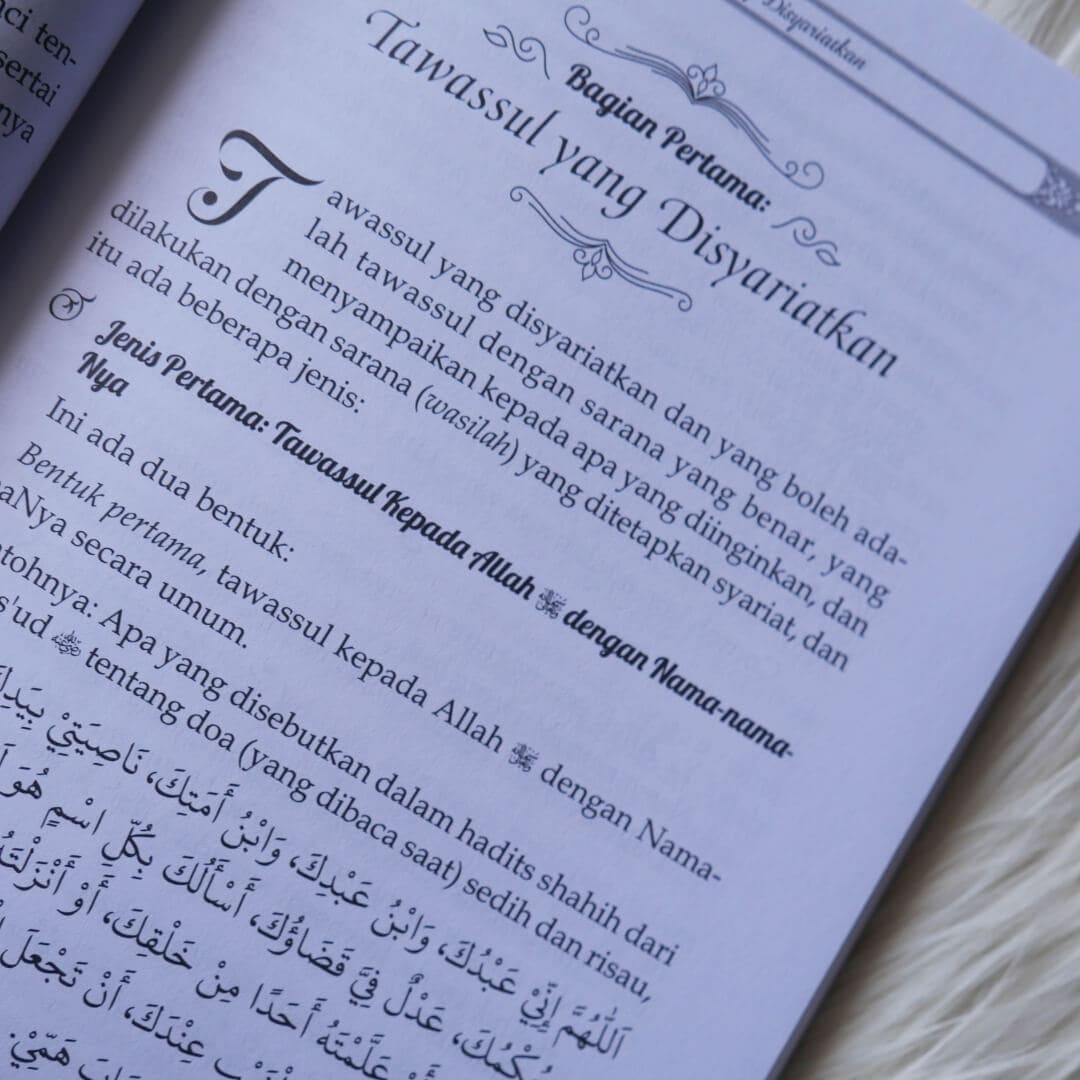 nci ten-
sertai
nya
Disyariatkan
Bagian Pertama:
Tawassul yang Disyariatkan
Tawassul yang disyariatkan dan yang boleh ada-
lah tawassul dengan sarana yang benar, yang
menyampaikan kepada apa yang diinginkan, dan
dilakukan dengan sarana (wasilah) yang ditetapkan syariat, dan
itu ada beberapa jenis:
Jenis Pertama: Tawassul Kepada Allah ﷻ dengan Nama-nama-
Nya
Ini ada dua bentuk:
Bentuk pertama, tawassul kepada Allah ﷻ dengan Nama-
aNya secara umum.
ntohnya: Apa yang disebutkan dalam hadits shahih dari
s'ud tentang doa (yang dibaca saat) sedih dan risau,
اَللّٰهُمَّ إِنِّيْ عَبْدُكَ، وَابْنُ عَبْدِكَ، وَابْنُ أَمَتِكَ، نَاصِيَتِيْ بِيَدِكَ
حُكْمُكَ، عَدْلٌ فِيَّ قَضَاؤُكَ، أَسْأَلُكَ بِكُلِّ اسْمٍ هُوَ
عَلَّمْتَهُ أَحَدًا مِنْ خَلْقِكَ، أَوْ أَنْزَلْتَهُ
عِنْدَكَ، أَنْ تَجْعَلَ
هَمِّيْ.